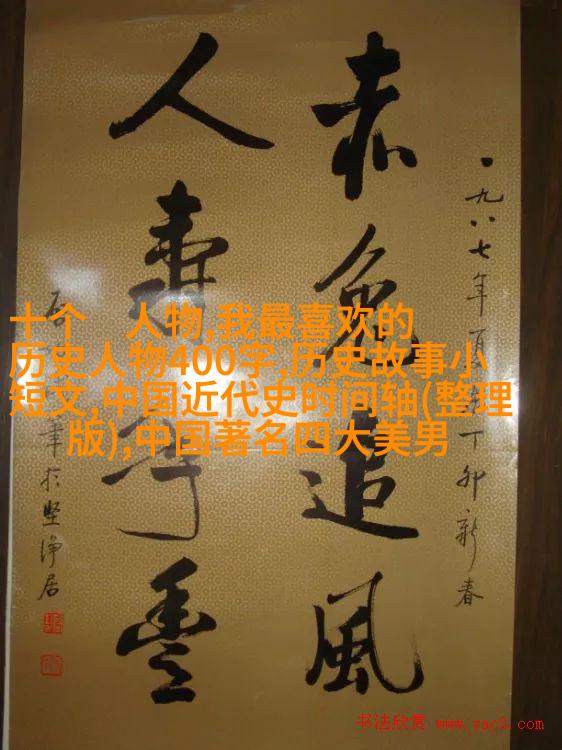 十个　人物,我最喜欢的
历史人物400字,历史故事小
短文,中国近代史时间轴(整理
版),中国著名四大美男
一九八七年
丁卯新春
赤兔追風
人寿年豊
於坚浄居
书法欣赏 www.yac8.com